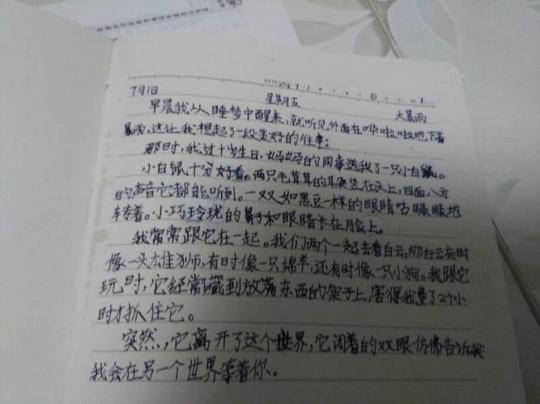 7月1日 星期五 大暴雨
早晨我从睡梦中醒来,就听见外面在哗啦啦地下着
暴雨,这让我想起了一段美好的往事:
那时,我过十岁生日,妈妈的同事送我了一只小白鼠。
小白鼠十分好看。两只毛茸茸的耳朵竖在头上,四面八方
的声音它都能听到。一双如黑豆一样的眼睛咕噜噜地
转着。小巧玲珑的鼻子和眼睛卡在脸上。
我常常跟它在一起。我们两个一起去看白云。那白云有时
像一头雄狮,有时像一只绵羊,还有时像一只小狗。我跟它
玩时,它经常藏到放落东西的架子上,害得我费了2个小
时才抓住它。
突然,它离开了这个世界,它闭着的双眼仿佛告诉我
我会在另一个世界等着你。